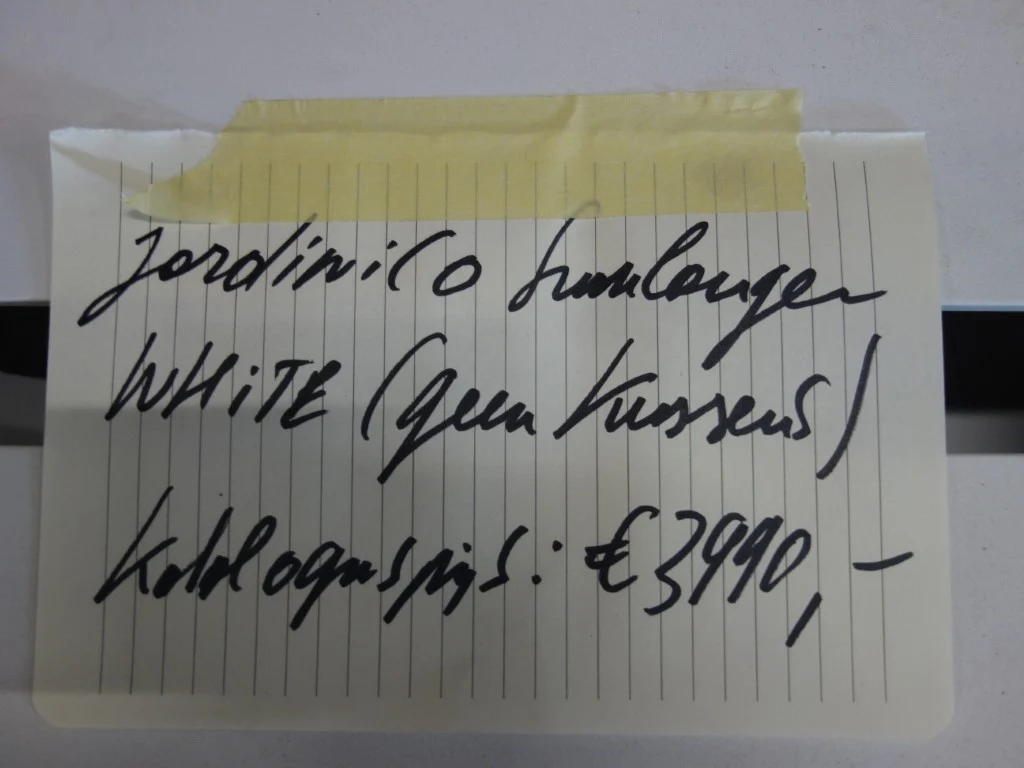 Jardinico Sunlounger
WHiTE (geen kussens)
Katalogusprijs: €3990,-